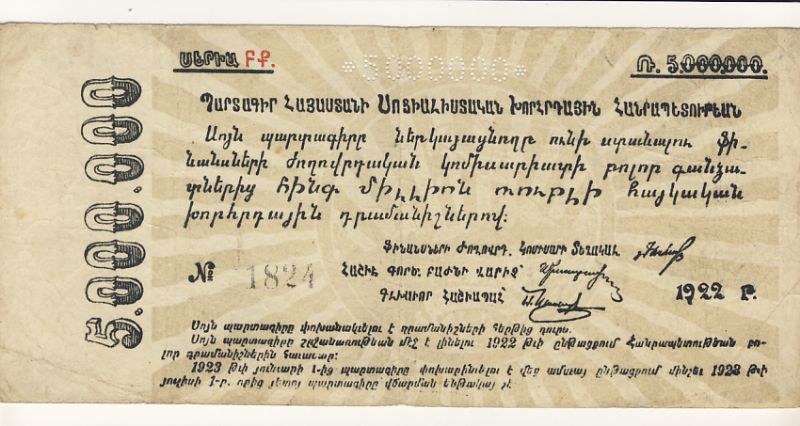 ՍԵՐԻԱ ԲՔ.
*5000000*
Ռ. 5.000.000.
5.000.000
ՊԱՐՏԱԳԻՐ ՀԱՅԱՍՏԱՆԻ ՍՈՑԻԱԼԻՍՏԱԿԱՆ ԽՈՐՀՐԴԱՅԻՆ ՀԱՆՐԱՊԵՏՈՒԹԵԱՆ
Սոյն պարտագիրը ներկայացնողը ունի ստանալու ֆի-
նանսների ժողովրդական կոմիսարիատի բոլոր գանձա-
տներից ՀԻՆԳ ՄԻԼԼԻՈՆ ռուբլի հայկական
խորհրդային դրամանիշներով։
ՖԻՆԱՆՍՆԵՐԻ ԺՈՂՈՎՐԴ. ԿՈՄԻՍԱՐԻ ՏԵՂԱԿԱԼ
№ 1824
ՀԱՇԻՒ ԳՈՐԾ. ԲԱԺՆԻ ՎԱՐԻՉ
ԳԼԽԱՒՈՐ ՀԱՇԻՒԱՊԱՀ
1922 Թ.
Սոյն պարտագիրը փոխանակելու է դրամանիշների հերթից դուրս.
Սոյն պարտագիրը շրջանառութեան մէջ է լինելու 1922 թւի ընթացքում Հանրապետութեան բո-
լոր դրամանիշներին հաւասար։
1923 թւի յունւարի 1-ից պարտագիրը փոխարինելու է վեց ամսւայ ընթացքում մինչև 1923 թւի
յուլիսի 1-ը. որից յետոյ պարտագիրը վճարման ենթակայ չէ